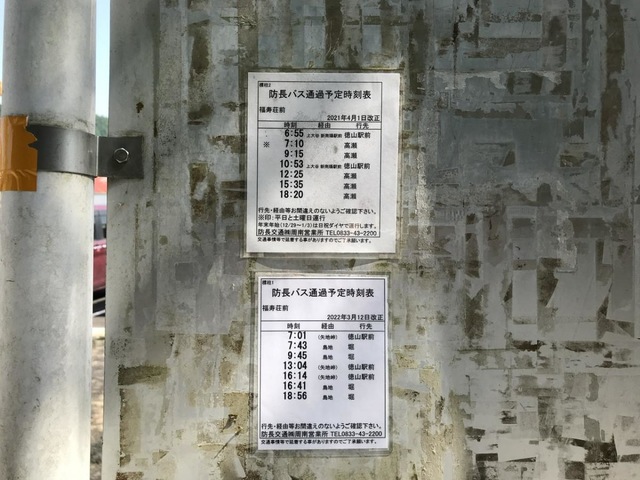 標柱2
防長バス通過予定時刻表
福寿荘前
2021年4月1日改正
時刻 経由 行先
6:55 上大谷 新南陽駅前 徳山駅前
※ 7:10 高瀬
9:15 高瀬
10:53 上大谷 新南陽駅前 徳山駅前
12:25 高瀬
15:35 高瀬
18:20 高瀬
行先・経由等お間違えのないようご確認下さい。
※印：平日と土曜日運行
年末年始(12/29～1/3)は日祝ダイヤで運行します。
防長交通㈱周南営業所 TEL0833-43-2200
交通事情等で延着する事がありますのでご了承願います。
標柱1
防長バス通過予定時刻表
福寿荘前
2022年3月12日改正
時刻 経由 行先
7:01 (矢地峠) 徳山駅前
7:43 島地 堀
9:45 島地 堀
13:04 (矢地峠) 徳山駅前
16:14 (矢地峠) 徳山駅前
16:41 島地 堀
18:56 島地 堀
行先・経由等お間違えのないようご確認下さい。
防長交通㈱周南営業所 TEL0833-43-2200
交通事情等で延着する事がありますのでご了承願います。